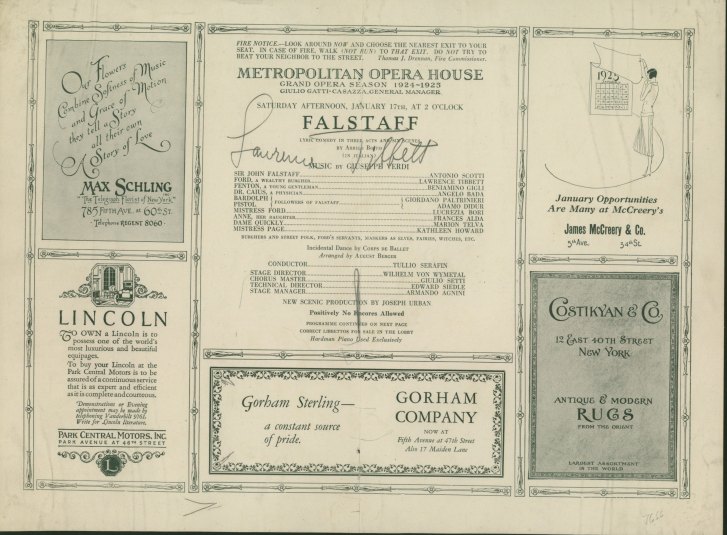 Our Flowers
Combine Softness of Music
and Grace of Motion
they tell a Story
all their own
A Story of Love
MAX SCHLING
"The Telegraph Florist of New York"
785 FIFTH AVE. AT 60TH ST.
Telephone REGENT 8060
LINCOLN
TO OWN a Lincoln is to
possess one of the world's
most luxurious and beautiful
equipages.
To buy your Lincoln at the
Park Central Motors is to be
assured of a continuous service
that is as expert and efficient
as it is complete and courteous.
Demonstrations or Evening
appointment may be made by
telephoning Vanderbilt 9761.
Write for Lincoln literature.
PARK CENTRAL MOTORS, INC.
PARK AVENUE AT 46TH STREET
L
FIRE NOTICE.—LOOK AROUND NOW AND CHOOSE THE NEAREST EXIT TO YOUR
SEAT. IN CASE OF FIRE, WALK (NOT RUN) TO THAT EXIT. DO NOT TRY TO
BEAT YOUR NEIGHBOR TO THE STREET. Thomas J. Drennan, Fire Commissioner.
METROPOLITAN OPERA HOUSE
GRAND OPERA SEASON 1924-1925
GIULIO GATTI-CASAZZA, GENERAL MANAGER
SATURDAY AFTERNOON, JANUARY 17TH, AT 2 O'CLOCK
FALSTAFF
LYRIC COMEDY IN THREE ACTS AND SIX SCENES
BY ARRIGO BOITO
(IN ITALIAN)
Lawrence Tibbett
MUSIC BY GIUSEPPE VERDI
SIR JOHN FALSTAFF ANTONIO SCOTTI
FORD, A WEALTHY BURGHER LAWRENCE TIBBETT
FENTON, A YOUNG GENTLEMAN BENIAMINO GIGLI
DR. CAIUS, A PHYSICIAN ANGELO BADA
BARDOLPH } FOLLOWERS OF FALSTAFF { GIORDANO PALTRINIERI
PISTOL ADAMO DIDUR
MISTRESS FORD LUCREZIA BORI
ANNE, HER DAUGHTER FRANCES ALDA
DAME QUICKLY MARION TELVA
MISTRESS PAGE KATHLEEN HOWARD
BURGHERS AND STREET FOLK, FORD'S SERVANTS, MASKERS AS ELVES, FAIRIES, WITCHES, ETC.
Incidental Dance by CORPS DE BALLET
Arranged by AUGUST BERGER
CONDUCTOR TULLIO SERAFIN
STAGE DIRECTOR WILHELM VON WYMETAL
CHORUS MASTER GIULIO SETTI
TECHNICAL DIRECTOR EDWARD SIEDLE
STAGE MANAGER ARMANDO AGNINI
NEW SCENIC PRODUCTION BY JOSEPH URBAN
Positively No Encores Allowed
PROGRAMME CONTINUED ON NEXT PAGE
CORRECT LIBRETTOS FOR SALE IN THE LOBBY
Hardman Piano Used Exclusively
Gorham Sterling—
a constant source
of pride.
GORHAM
COMPANY
NOW AT
Fifth Avenue at 47th Street
Also 17 Maiden Lane
1925
January Opportunities
Are Many at McCreery's
James McCreery & Co.
5th Ave. 34th St.
COSTIKYAN & CO.
12 EAST 40TH STREET
NEW YORK
ANTIQUE & MODERN
RUGS
FROM THE ORIENT
LARGEST ASSORTMENT
IN THE WORLD